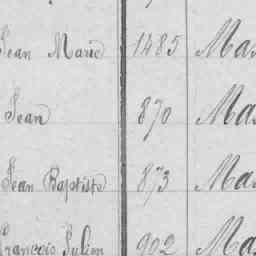 Jean Marie 1485 Mas
Jean 870 Mas
Jean Baptiste 873 Mas
François Julien 902 Mas